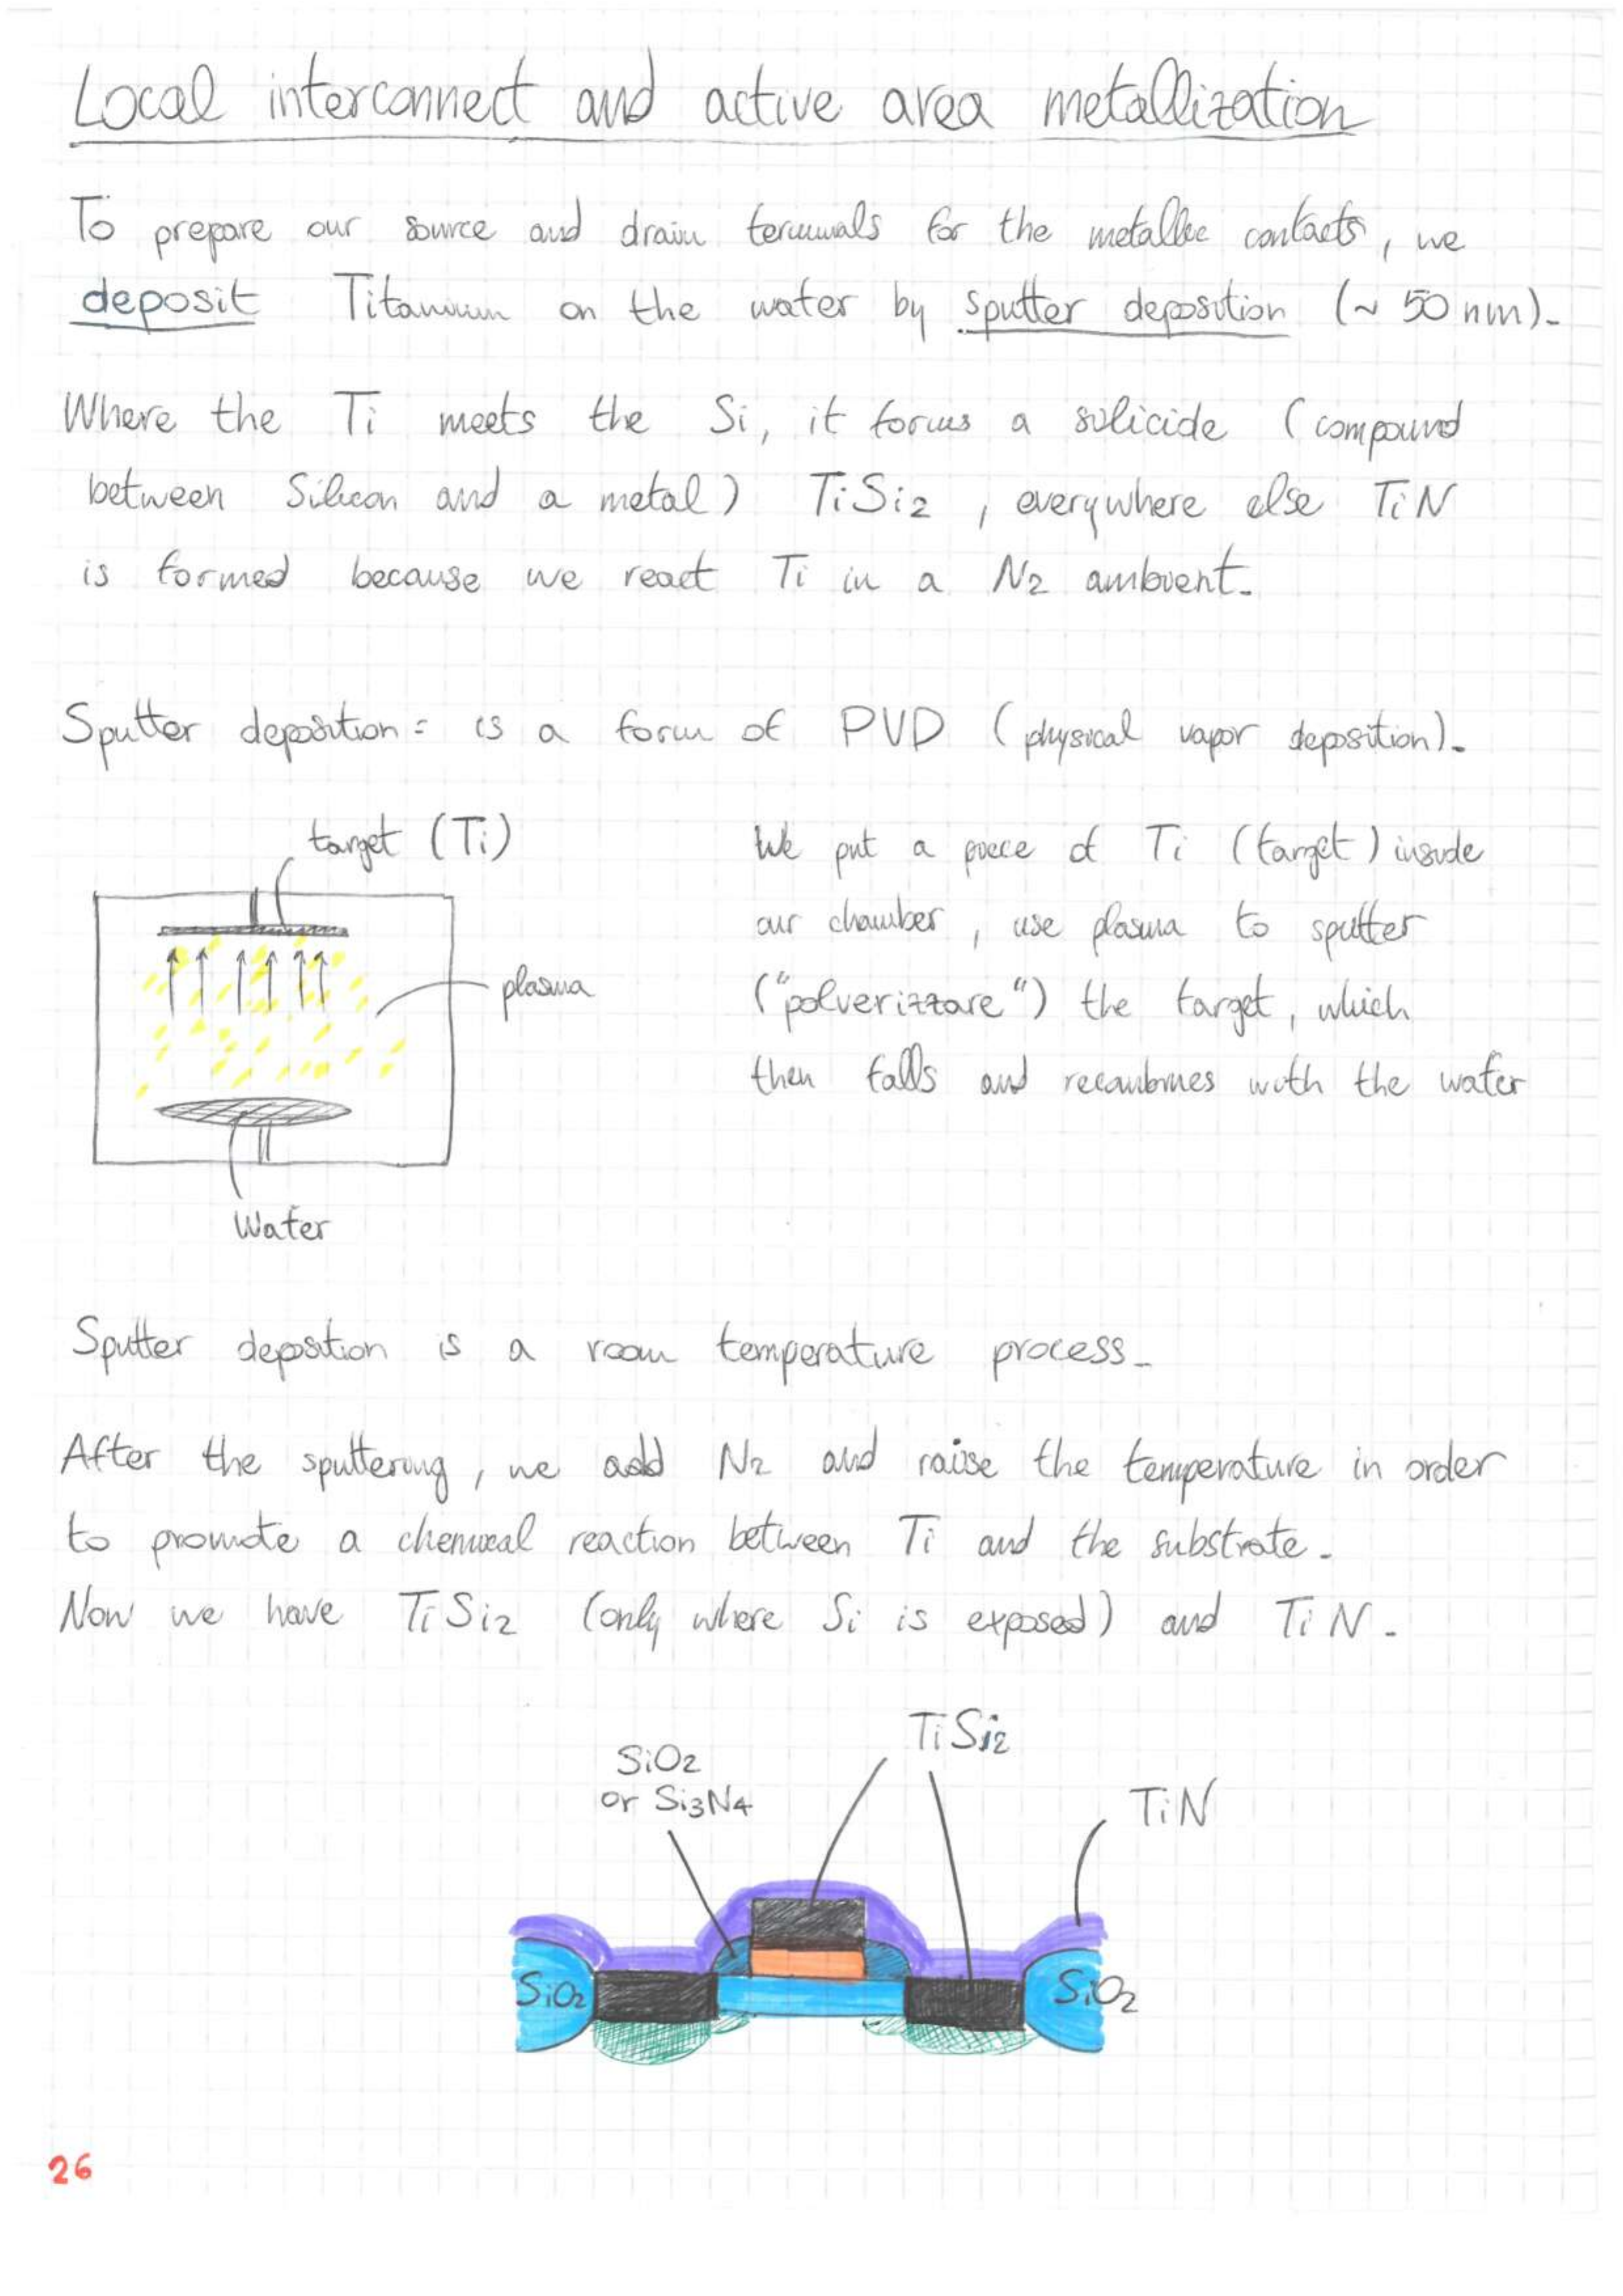 Local interconnect and active area metallization
To prepare our source and drain terminals for the metallic contacts, we
deposit Titanium on the wafer by sputter deposition (~ 50 nm).
Where the Ti meets the Si, it forms a silicide (compound
between Silicon and a metal) TiSi2, everywhere else TiN
is formed because we react Ti in a N2 ambient.
Sputter deposition: is a form of PVD (physical vapor deposition).
target (Ti)
plasma
Wafer
We put a piece of Ti (target) inside
our chamber, use plasma to sputter
("polverizzare") the target, which
then falls and recombines with the wafer
Sputter deposition is a room temperature process.
After the sputtering, we add N2 and raise the temperature in order
to promote a chemical reaction between Ti and the substrate.
Now we have TiSi2 (only where Si is exposed) and TiN.
TiSi2
SiO2
or Si3N4
TiN
SiO2
SiO2
26